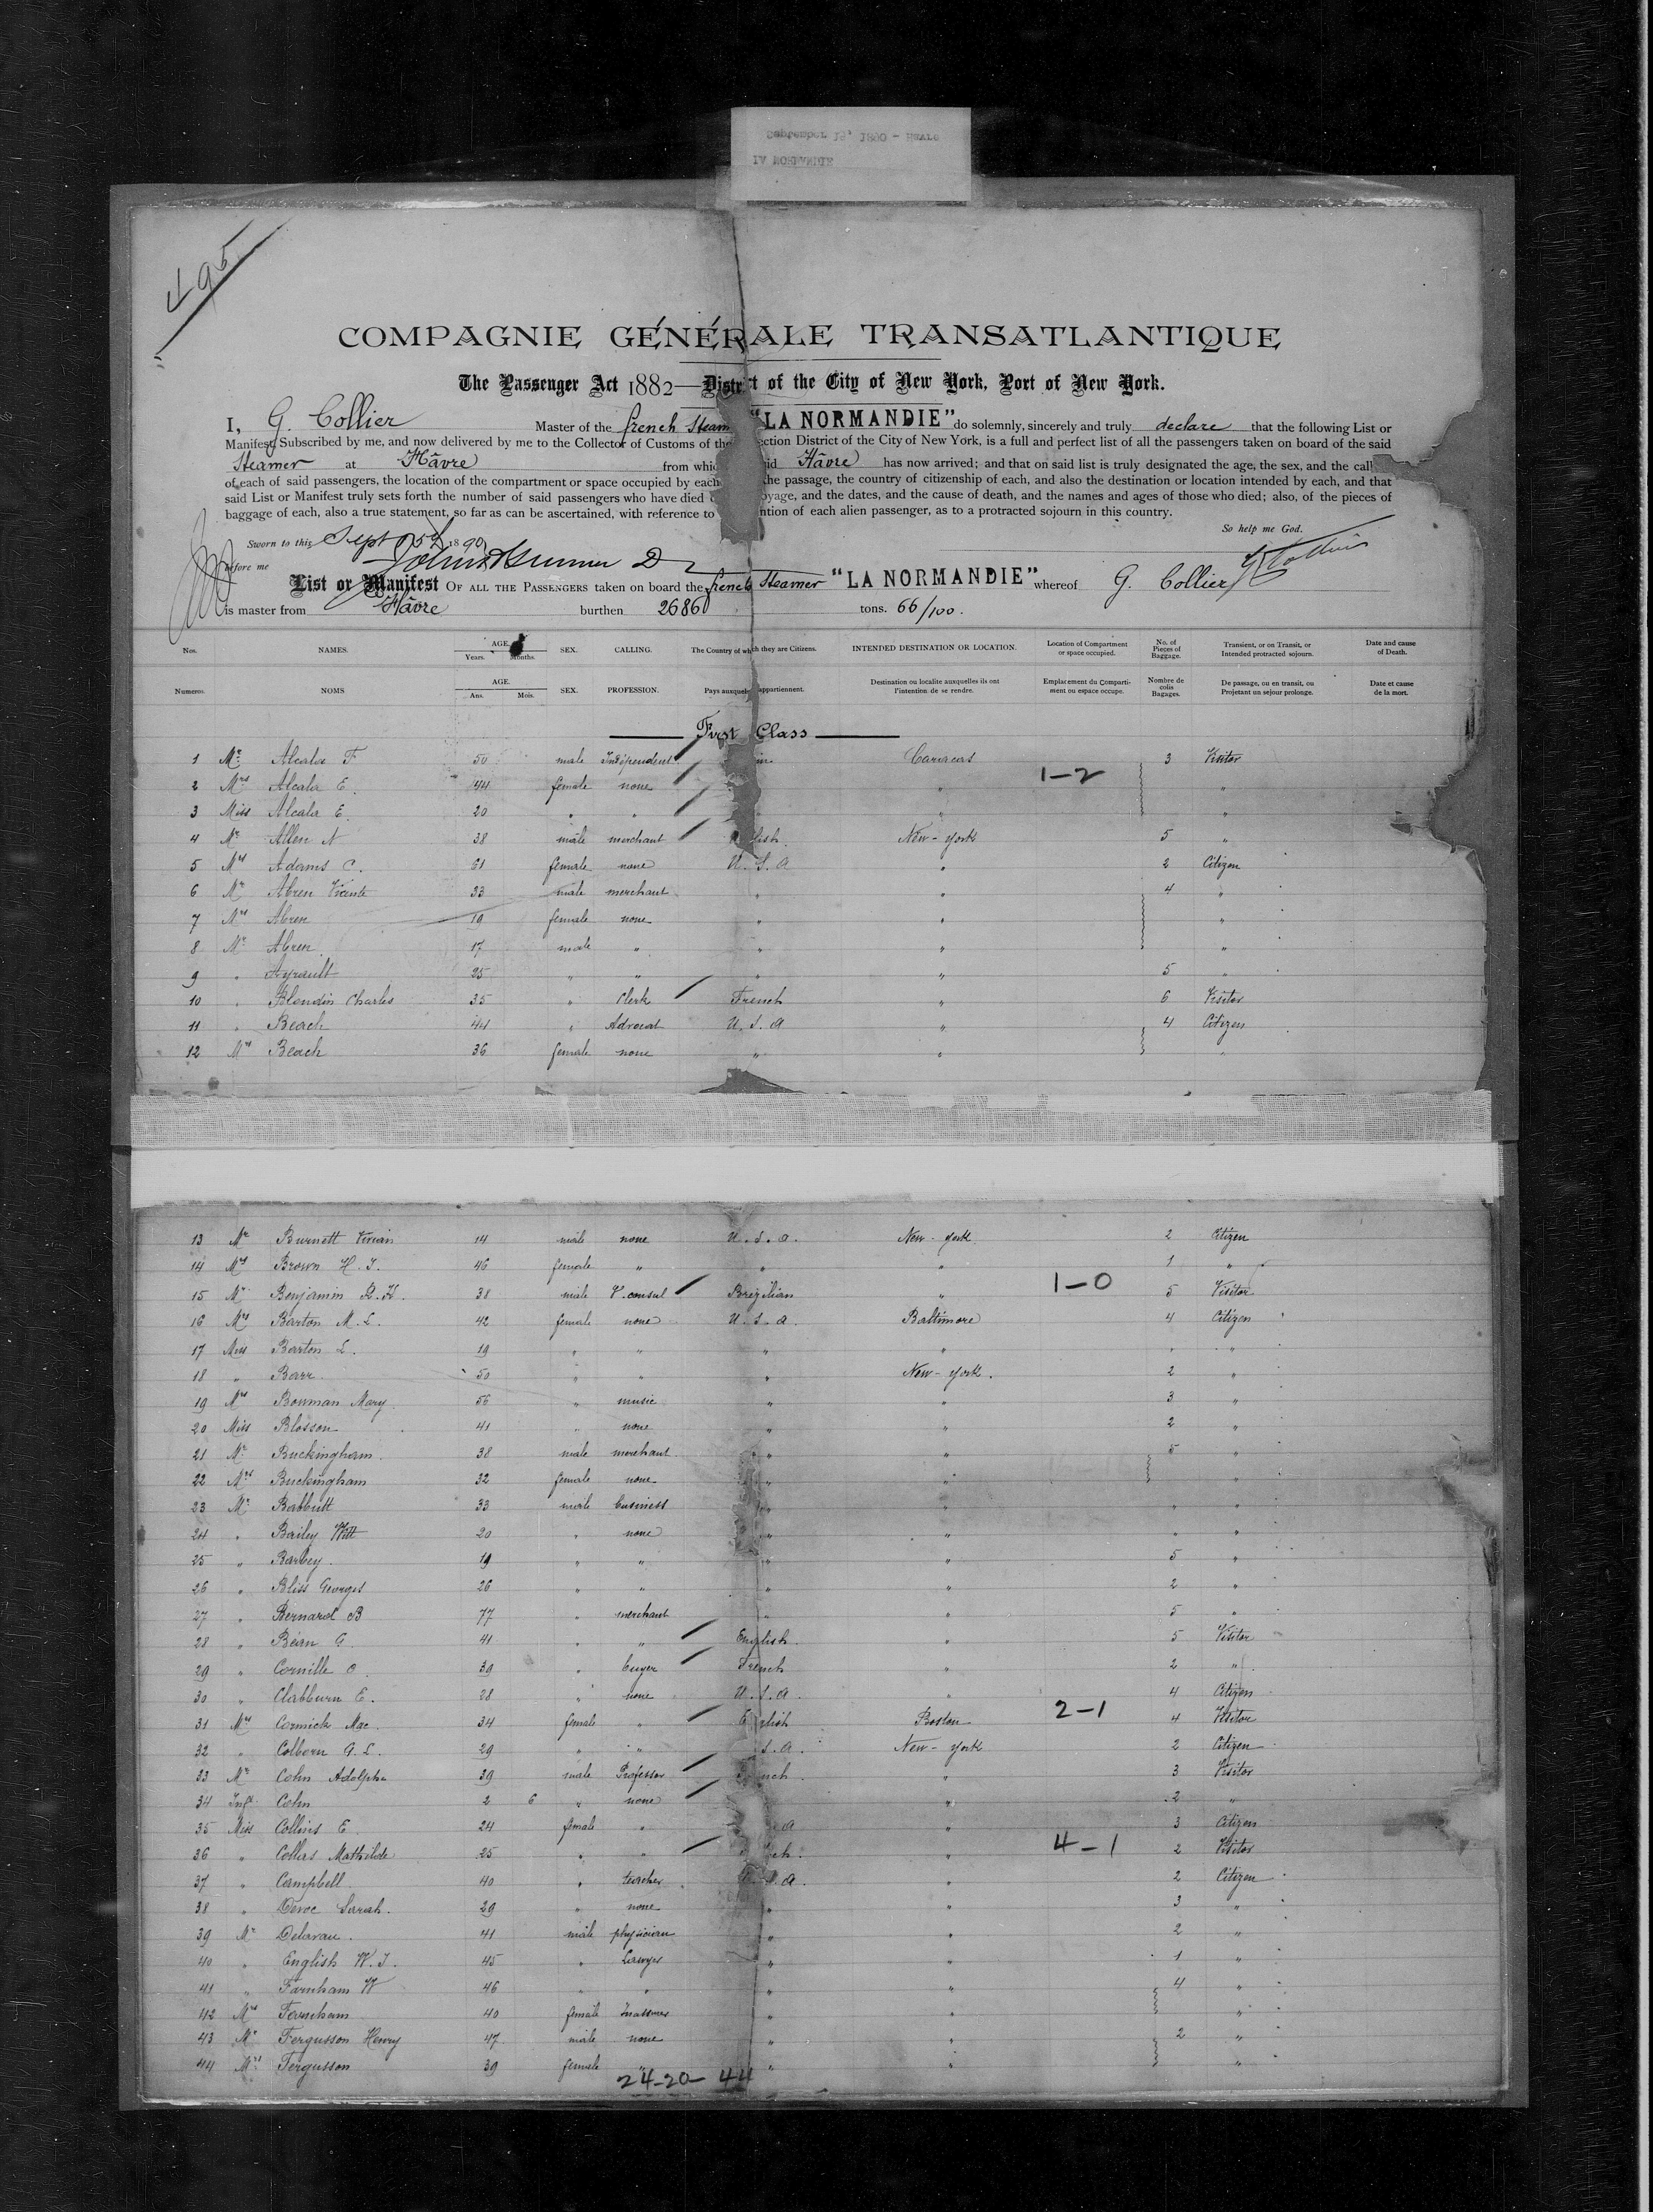 September 15, 1890 - Havre
LA NORMANDIE
495
COMPAGNIE GÉNÉRALE TRANSATLANTIQUE
The Passenger Act 1882—District of the City of New York, Port of New York.
I, G. Collier Master of the french Steam "LA NORMANDIE" do solemnly, sincerely and truly declare that the following List or
Manifest Subscribed by me, and now delivered by me to the Collector of Customs of the ection District of the City of New York, is a full and perfect list of all the passengers taken on board of the said
Steamer at Hâvre from which id Hâvre has now arrived; and that on said list is truly designated the age, the sex, and the call
of each of said passengers, the location of the compartment or space occupied by each the passage, the country of citizenship of each, and also the destination or location intended by each, and that
said List or Manifest truly sets forth the number of said passengers who have died oyage, and the dates, and the cause of death, and the names and ages of those who died; also, of the pieces of
baggage of each, also a true statement, so far as can be ascertained, with reference to ntion of each alien passenger, as to a protracted sojourn in this country.
So help me God.
Sworn to this Sept 15th 1890
before me
G Collier
List or Manifest OF ALL THE PASSENGERS taken on board the french Steamer "LA NORMANDIE" whereof G. Collier
is master from Hâvre burthen 2686 tons. 66/100.
Nos. NAMES. AGE. Years. Months. SEX. CALLING. The Country of which they are Citizens. INTENDED DESTINATION OR LOCATION. Location of Compartment or space occupied. No. of Pieces of Baggage. Transient, or on Transit, or Intended protracted sojourn. Date and cause of Death.
Numeros. NOMS. AGE. Ans. Mois. SEX. PROFESSION. Pays auxquels appartiennent. Destination ou localite auxquelles ils ont l'intention de se rendre. Emplacement du Compartiment ou espace occupe. Nombre de colis Bagages. De passage, ou en transit, ou Projetant un sejour prolonge. Date et cause de la mort.
First Class
1 Mr Alcala F 50 male Independent Caracas 3 Visitor
2 Mrs Alcala E. 44 female none " 1-2 "
3 Miss Alcala E. 20 " " " "
4 Mr Allen N 38 male merchant lish. New-York 5 "
5 Mrs Adams C. 61 female none U.S.A " 2 Citizen
6 Mr Abren Vicente 23 male merchant " " 4 "
7 Mrs Abren 19 female none " " "
8 Mr Abren 17 male " " " "
9 " Ayrault 25 " " " " 5 "
10 " Blondin Charles 35 " Clerk French " 6 Visitor
11 " Beach 44 " Advocat U.S.A " 4 Citizen
12 Mrs Beach 36 female none " " "
13 Mr Burnett Vivian 14 male none U.S.a. New-york 2 Citizen
14 Mrs Brown H.J. 46 female " " " 1 "
15 Mr Benjamin R.H. 38 male V. consul Brezilian " 1-0 5 Visitor
16 Mrs Barton M.L. 42 female none U.S.a. Baltimore 4 Citizen
17 Miss Barton L. 19 " " " " " "
18 " Barr. 50 " " " New-york. 2 "
19 Mrs Bowman Mary 56 " music " " 3 "
20 Miss Blosson 41 " none " " 2 "
21 Mr Buckingham. 38 male merchant. " " 5 "
22 Mrs Buckingham 32 female none " " "
23 Mr Babbutt 33 male business " " " "
24 " Bailey Witt 20 " none " " " "
25 " Barbey. 19 " " " " 5 "
26 " Bliss Georges 26 " " " " 2 "
27 " Bernard B 77 " merchant " " 5 "
28 " Bean G. 41 " " English. " 5 Visitor
29 " Cornille O. 39 " buyer French " 2 "
30 " Clabburn E. 28 " none U.S.a. " 4 Citizen
31 Mrs Cormick Mac. 34 female " English Boston 2-1 4 Visitor
32 " Colborn G.L. 29 " " S.a. New-york 2 Citizen
33 Mr Cohn Adolphe 39 male Professor nch. " 3 Visitor
34 Inft. Cohn 2 6 " none " 2 "
35 Miss Collins E 24 female " a " 3 Citizen
36 " Collas Mathilde 25 " " ch. " 4-1 2 Visitor
37 " Campbell. 40 " teacher S.a. " 2 Citizen
38 " Devoe Sarah. 29 " none " " 3 "
39 Mr Delavau. 41 male physician " " 2 "
40 " English W.J. 45 " Lawyer " " 1 "
41 " Farnham W 46 " " " " 4 "
42 Mrs Farnham 40 female " " "
43 Mr Fergusson Henry 47 male none " " 2 "
44 Mrs Fergusson 39 female " " " "
24-20-44